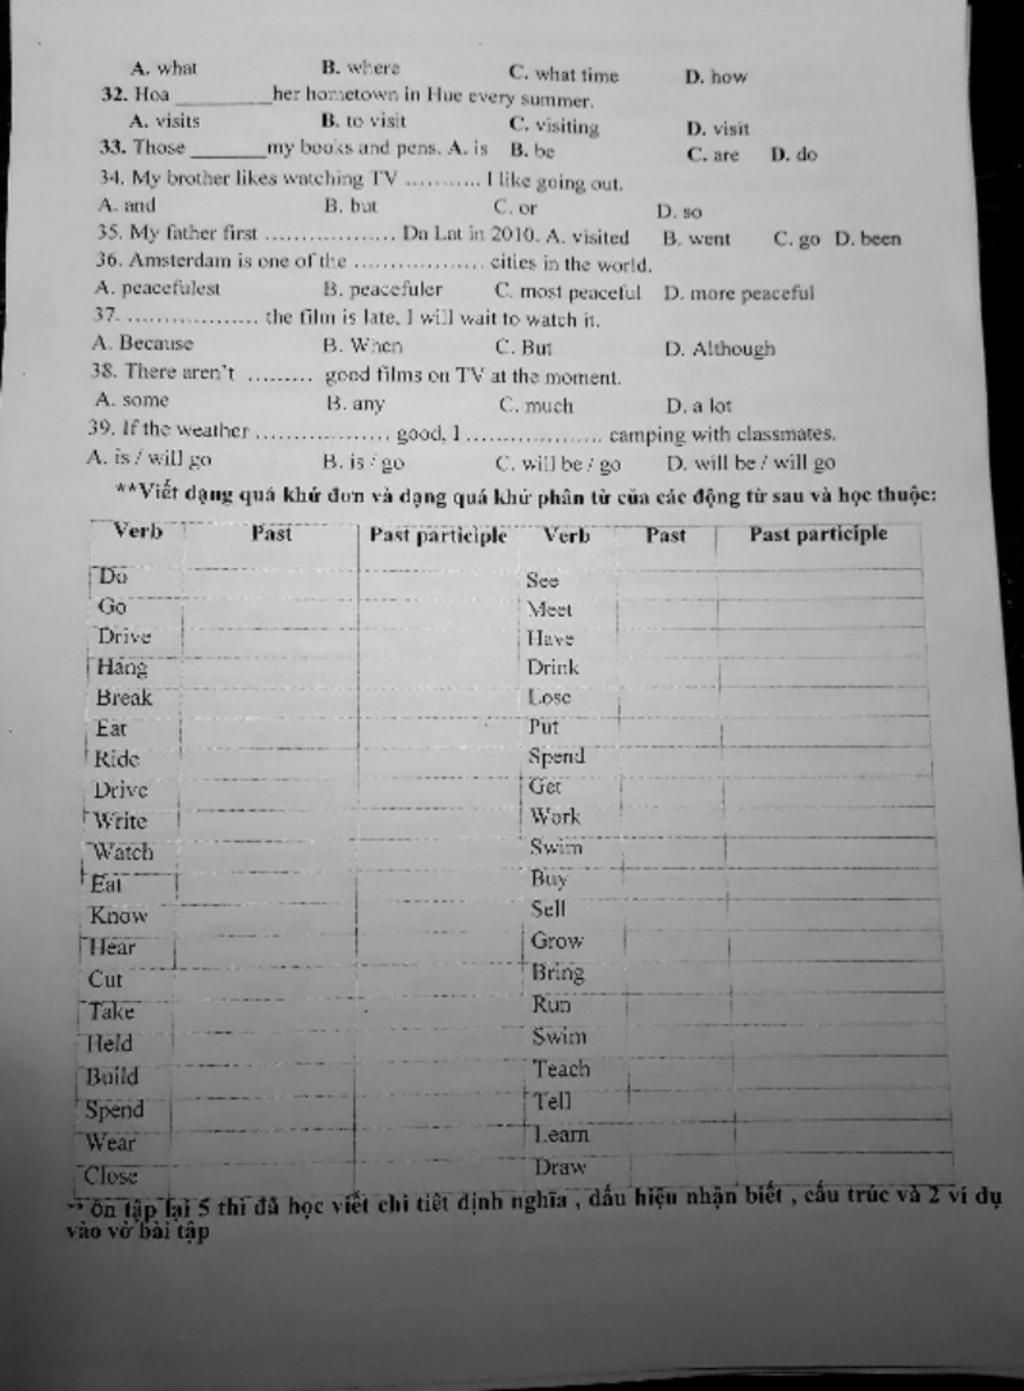 A. what B. where C. what time D. how
32. Hoa __________her hometown in Hue every summer.
A. visits B. to visit C. visiting D. visit
33. Those ________my books and pens. A. is B. be C. are D. do
34. My brother likes watching TV ........... I like going out.
A. and B. but C. or D. so
35. My father first ................... Da Lat in 2010. A. visited B. went C. go D. been
36. Amsterdam is one of the ................... cities in the world.
A. peacefulest B. peacefuler C. most peaceful D. more peaceful
37. ................... the film is late, I will wait to watch it.
A. Because B. When C. But D. Although
38. There aren't ......... good films on TV at the moment.
A. some B. any C. much D. a lot
39. If the weather ................... good, I ................... camping with classmates.
A. is / will go B. is / go C. will be / go D. will be / will go
**Viết dạng quá khứ đơn và dạng quá khứ phân từ của các động từ sau và học thuộc:
Verb Past Past participle Verb Past Past participle
Do See
Go Meet
Drive Have
Hang Drink
Break Lose
Eat Put
Ride Spend
Drive Get
Write Work
Watch Swim
Eat Buy
Know Sell
Hear Grow
Cut Bring
Take Run
Held Swim
Build Teach
Spend Tell
Wear Learn
Close Draw
** ôn tập lại 5 thì đã học viết chi tiết định nghĩa , dấu hiệu nhận biết , cấu trúc và 2 ví dụ
vào vở bài tập